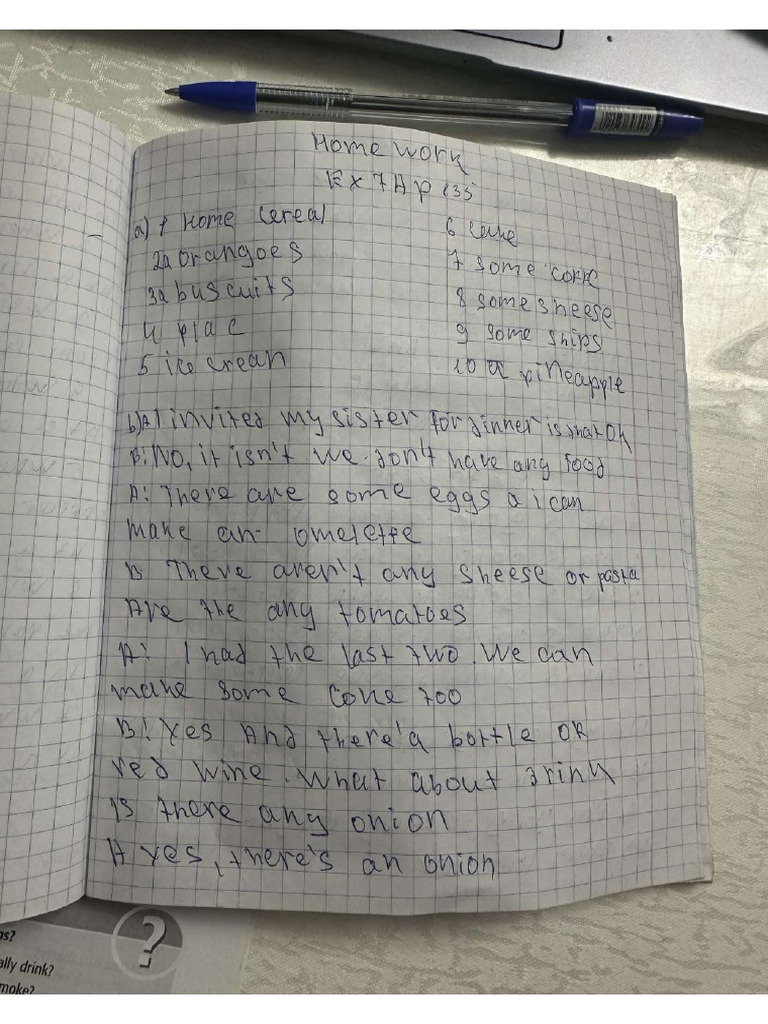 Home work
Ex 7A p 135
a) 1 Home cereal
2a orangoes
3a buscuits
4 plac
5 ice crean
6 cake
7 some coffe
8 some sheese
9 some ships
10 a pineapple
b) A I invited my sister for dinner is that Ok
B: No, it isn't we don't have any food
A: There are some eggs a i can
make an omelette
B There aren't any sheese or pasta
Are the any tomatoes
A: I had the last two. We can
make some Coke too
B: Yes And there'a bottle Ok
red wine. What about drink
Is there any onion
A yes, there's an onion
as?
ally drink?
moke?
?